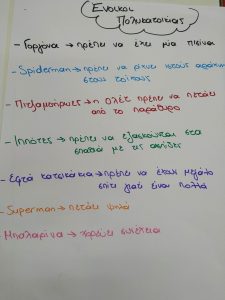 Ένοικοι
Πολυκατοικίας
- Γοργόνα → πρέπει να έχει μία πισίνα
- Spiderman → πρέπει να ρίχνει ιστούς αράχνης
στους τοίχους
- Πιτζαμοήρωες → η Ολέτ πρέπει να πετάει
από το παράθυρο
- Ιππότες → πρέπει να εξασκούνται στα
σπαθιά με τις ασπίδες
- Εφτά κατσικάκια → πρέπει να έχουν μεγάλο
σπίτι γιατί είναι πολλά
- Superman → πετάει ψηλά
Μπαλαρίνα → χορεύει συνέχεια